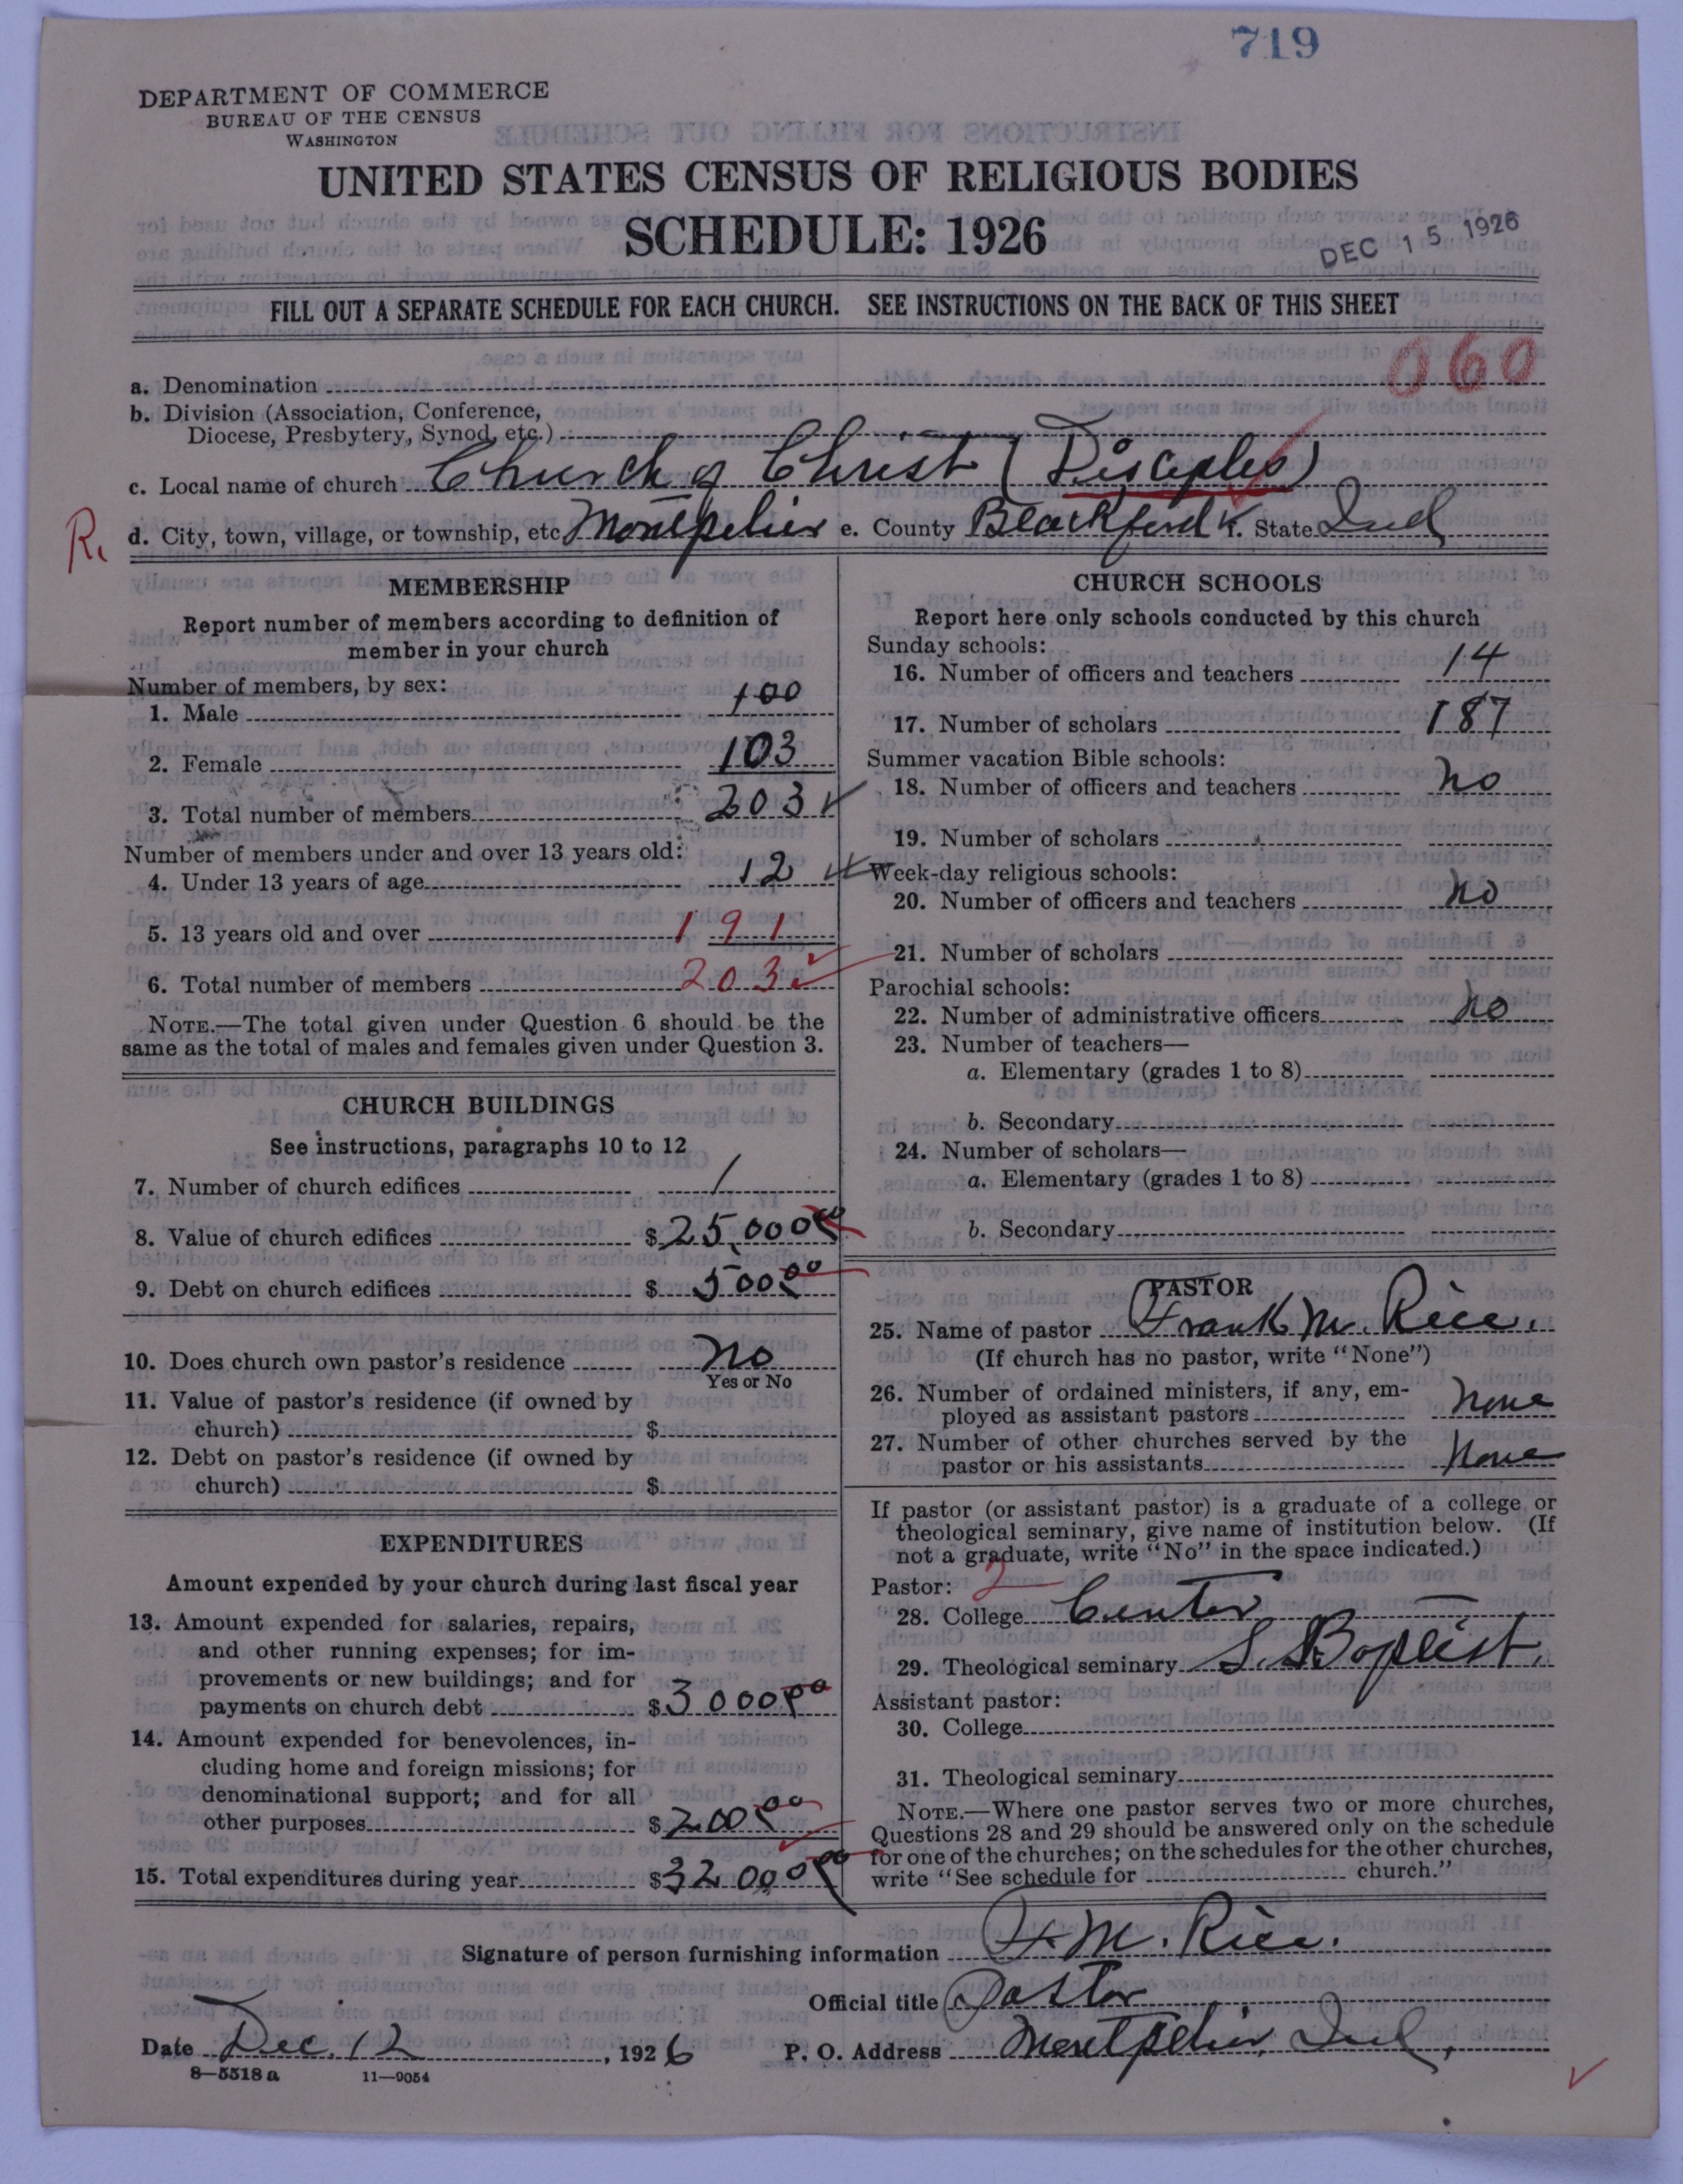 719
DEPARTMENT OF COMMERCE
BUREAU OF THE CENSUS
WASHINGTON
UNITED STATES CENSUS OF RELIGIOUS BODIES
SCHEDULE: 1926
DEC 15 1926
FILL OUT A SEPARATE SCHEDULE FOR EACH CHURCH. SEE INSTRUCTIONS ON THE BACK OF THIS SHEET
060
a. Denomination
b. Division (Association, Conference,
Diocese, Presbytery, Synod, etc.)
c. Local name of church Church of Christ (Disciples)
R. d. City, town, village, or township, etc Montpelier e. County Blackford f. State Ind
MEMBERSHIP
Report number of members according to definition of
member in your church
Number of members, by sex:
1. Male 100
2. Female 103
3. Total number of members 203
Number of members under and over 13 years old:
4. Under 13 years of age 12
5. 13 years old and over 191
6. Total number of members 203
NOTE.—The total given under Question 6 should be the
same as the total of males and females given under Question 3.
CHURCH BUILDINGS
See instructions, paragraphs 10 to 12
7. Number of church edifices 1
8. Value of church edifices $25,000 00
9. Debt on church edifices $ 500 00
10. Does church own pastor's residence no
Yes or No
11. Value of pastor's residence (if owned by
church) $
12. Debt on pastor's residence (if owned by
church) $
EXPENDITURES
Amount expended by your church during last fiscal year
13. Amount expended for salaries, repairs,
and other running expenses; for im-
provements or new buildings; and for
payments on church debt $3000 00
14. Amount expended for benevolences, in-
cluding home and foreign missions; for
denominational support; and for all
other purposes $200 00
15. Total expenditures during year $3200 00
CHURCH SCHOOLS
Report here only schools conducted by this church
Sunday schools:
16. Number of officers and teachers 14
17. Number of scholars 187
Summer vacation Bible schools:
18. Number of officers and teachers no
19. Number of scholars
Week-day religious schools:
20. Number of officers and teachers no
21. Number of scholars
Parochial schools:
22. Number of administrative officers no
23. Number of teachers—
a. Elementary (grades 1 to 8)
b. Secondary
24. Number of scholars—
a. Elementary (grades 1 to 8)
b. Secondary
PASTOR
25. Name of pastor Frank M. Rice.
(If church has no pastor, write "None")
26. Number of ordained ministers, if any, em-
ployed as assistant pastors None
27. Number of other churches served by the
pastor or his assistants None
If pastor (or assistant pastor) is a graduate of a college or
theological seminary, give name of institution below. (If
not a graduate, write "No" in the space indicated.)
Pastor: 2
28. College Center
29. Theological seminary S. Baptist.
Assistant pastor:
30. College
31. Theological seminary
NOTE.—Where one pastor serves two or more churches,
Questions 28 and 29 should be answered only on the schedule
for one of the churches; on the schedules for the other churches,
write "See schedule for church."
Signature of person furnishing information F. M. Rice.
Official title Pastor
Date Dec. 12, 1926 P. O. Address Montpelier, Ind,
8—5518a 11—9054